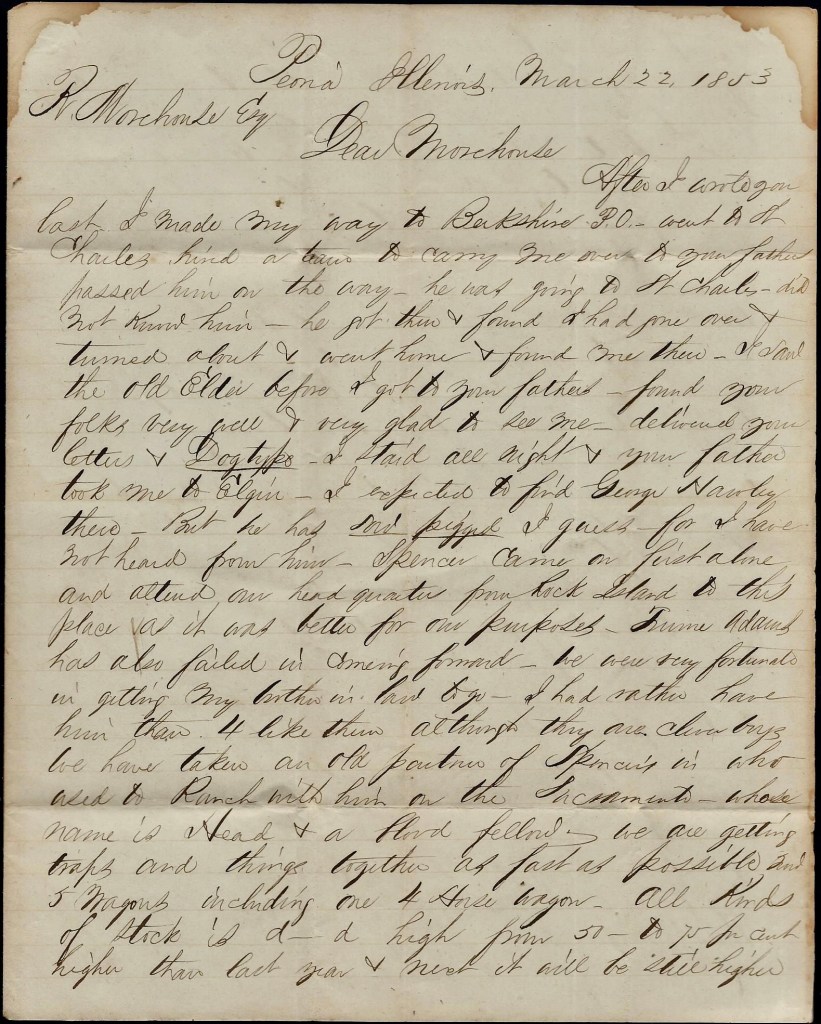 Peoria Illinois, March 22, 1853
R. Morehouse Esq
Dear Morehouse
After I wrote you
last I made my way to Berkshire P.O. - went to St
Charles hired a team to carry me over to your fathers
passed him on the way - he was going to St Charles - did
not know him - he got there & found I had gone over &
turned about & went home & found me there - I saw
the old Elder before I got to your fathers - found your
folks very well & very glad to see me - delivered your
letters & Dogtype - I staid all night & your father
took me to Elgin - I expected to find George Hawley
there - But he has I guess - for I have
not heard from him - Spencer came on first alone
and our head quarters from Rock Island to this
place as it was better for our purposes - Adams
has also failed in coming forward - we were very fortunate
in getting my brother in law to go - I had rather have
him than 4 like them although they are clever boys
We have taken an old partner of Spencers in who
used to Ranch with him on the Sacramento - whose
name is Head & a good fellow - we are getting
traps and things together as fast as possible and
5 Wagons including one 4 Horse wagon - All Kinds
of stock is d--d high from 50 - to 75 per cent
higher than last year & next it will be still higher